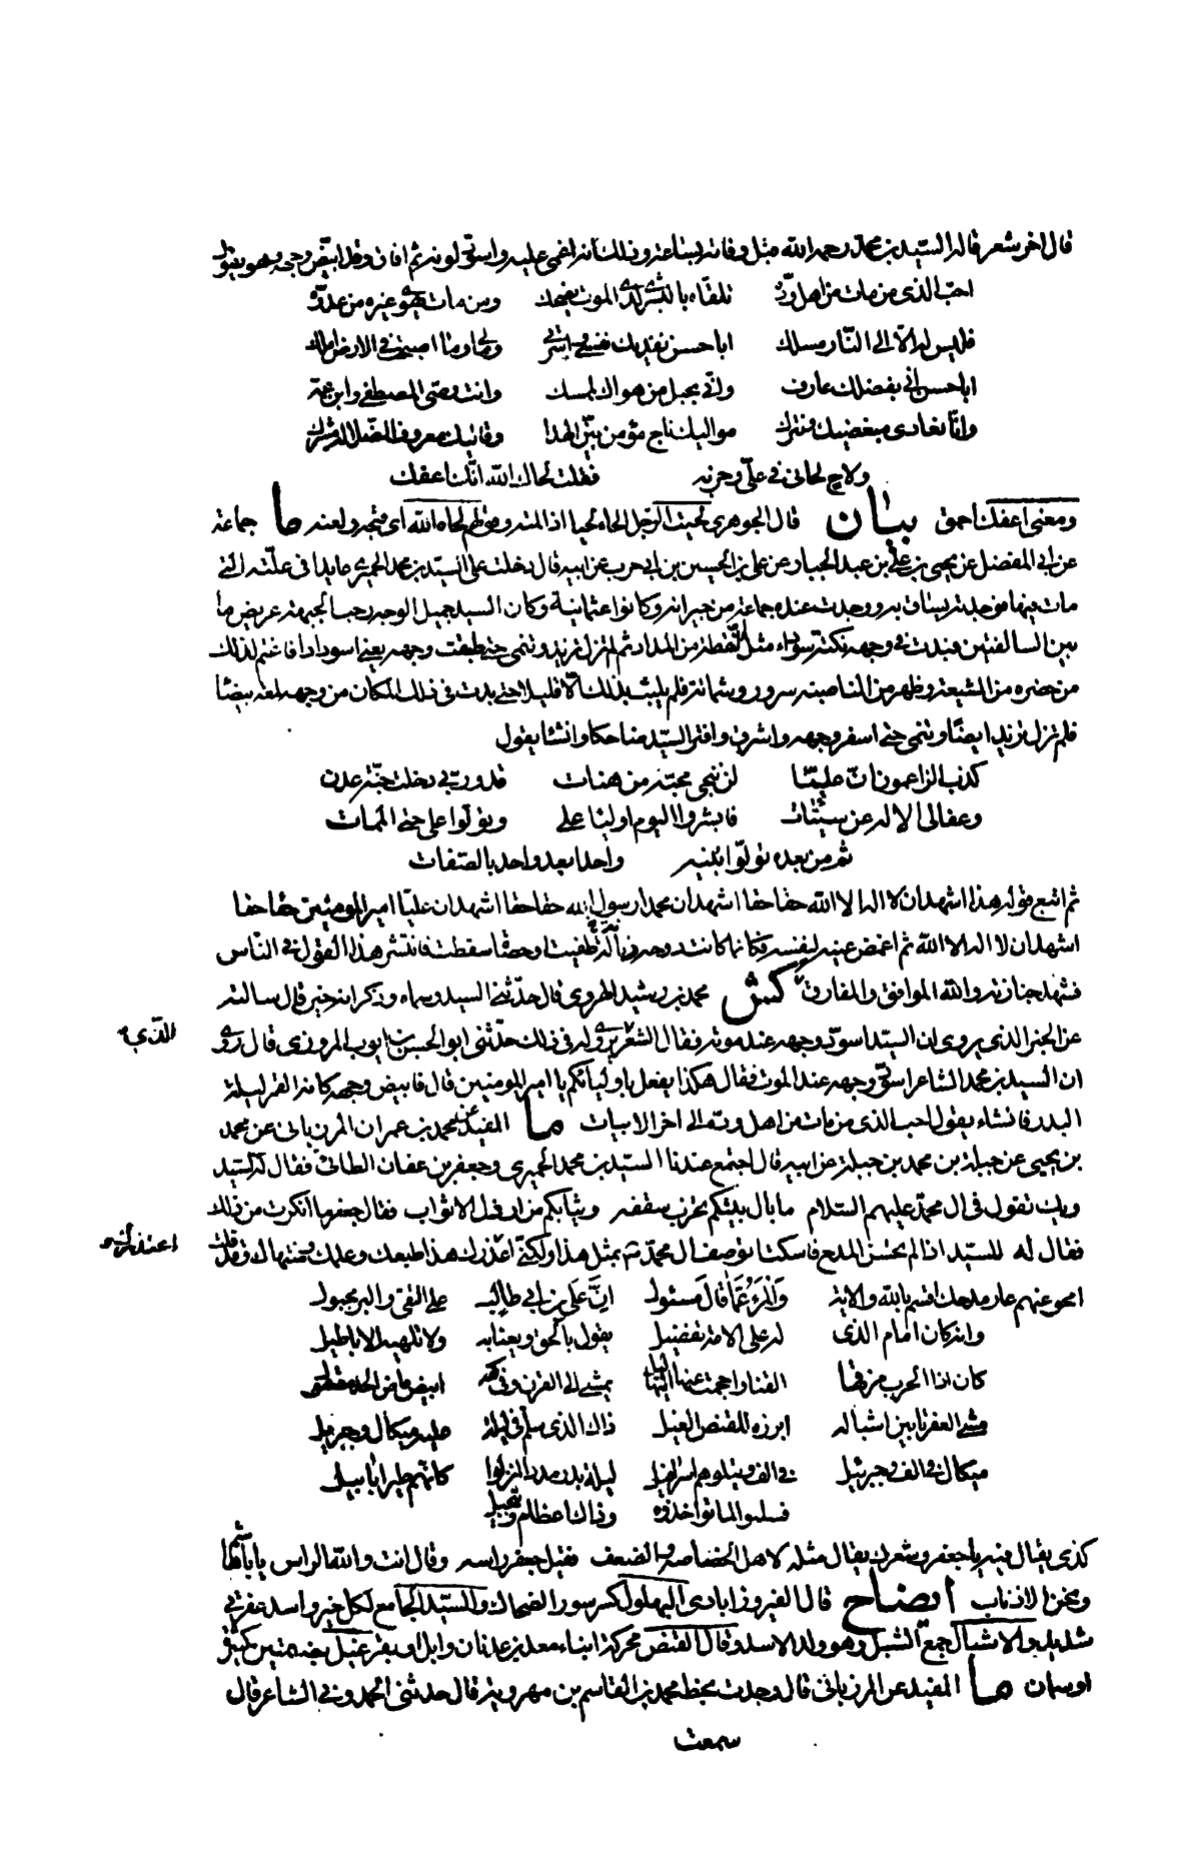 قال اخر شعر قاله السيد بن محمد رحمه الله قبل وفاته بساعة وذلك انه اغمي عليه واسود لونه ثم افاق وقد ابيض وجهه وهو يقول
احب الذي من مات من اهل وده تلقاه بالبشرى لدى الموت يضحك ومن مات يهوى غيره من عدوه
فليس له الا الى النار مسلك ابا حسن تفديك نفسي واسرتي ومالي وما اصبحت في الارض املك
ابا حسن اني بفضلك عارف واني بحبل من هواك لممسك وانت وصي المصطفى وابن عمه
وانا نعادي مبغضيك ونترك مواليك ناج مؤمن بين الهدا وقاليك معروف الضلالة مشرك
ولاح لحاني في علي وحزبه فقلت لحاك الله انك اعفك
ومعنى اعفك احمق بيان قال الجوهري لحيت الرجل الحاه لحيا اذا لمته وقولهم لحاه الله اى قبحه ولعنه ما جماعة
عن ابي المفضل عن يحيى بن علي بن عبد الجبار عن علي بن الحسين بن ابي حرب عن ابيه قال دخلت على السيد بن محمد الحميري عايدا في علته التي
مات فيها فوجدته يساق به ووجدت عنده جماعة من جيرانه وكانوا عثمانية وكان السيد جميل الوجه رحب الجبهة عريض ما
بين السالفتين فبدت في وجهه نكتة سوداء مثل النقطة من المداد ثم لم تزل تزيد وتنمى حتى طبقت وجهه يعني اسودادا فاغتم لذلك
من حضره من الشيعة وظهر من الناصبة سرور وشماتة فلم يلبث بذلك الا قليلا حتى بدت في ذلك المكان من وجهه لمعة بيضا
فلم تزل تزيد ايضا وتنمى حتى اسفر وجهه واشرق وافتر السيد ضاحكا وانشا يقول
كذب الزاعمون ان عليا لن ينجي محبه من هنات قد وربي دخلت جنة عدن
وعفا لي الاله عن سيئات فابشروا اليوم اوليا علي وتولوا علي حتى الممات
ثم من بعده تولوا بنيه واحدا بعد واحد بالصفات
ثم اتبع قوله هذا اشهد ان لا اله الا الله حقا حقا اشهد ان محمدا رسول الله حقا حقا اشهد ان عليا امير المومنين حقا حقا
اشهد ان لا اله الا الله ثم اغمض عينيه لنفسه فكانما كانت روحه ذبالة طفيت او حصاة سقطت فانتشر هذا القول في الناس
فشهد جنازته والله الموافق والمفارق كش محمد بن رشيد الهروي قال حدثني السيد وسماه وذكر انه خير قال سالته
عن الخبر الذي يروى ان السيد اسود وجهه عند موته فقال الشعر الذي يروى له في ذلك حدثني ابو الحسين بن ايوب المروزى قال روى
ان السيد بن محمد الشاعر اسود وجهه عند الموت فقال هكذا يفعل باوليائكم يا امير المومنين قال فابيض وجهه كانه القمر ليلة
البدر فانشاء يقول احب الذي من مات من اهل وده الى اخر الابيات ما المفيد عن محمد بن عمران المرزباني عن محمد
بن يحيى عن جبلة بن محمد بن جبلة عن ابيه قال اجتمع عندنا السيد بن محمد الحميري وجعفر بن عفان الطائي فقال له السيد
ويلك تقول في ال محمد عليهم السلام ما بال بيتكم تخرب سقفه وثيابكم من ارذل الاثواب فقال جعفر ما انكرت من ذلك
فقال له السيد اذا لم تحسن المدح فاسكت اتوصف ال محمد بمثل هذا ولكني اعذرك هذا طبعك وعلمك ومنتهاك وقد قلت
امحو عنهم عار مدحك اقسم بالله والائه والمرء عما قال مسئول ان علي بن ابي طالب على التقى والبر مجبول
وانه كان امام الذي له على الامة تفضيل يقول بالحق ويعنا به ولا تلهيه الاباطيل
كان اذا الحرب مرتها القنا واحجمت عنها البهاليل يمشي الى القرن وفي كفه ابيض ماضي الحد مصقول
مشي العفرنا بين اشباله ابرزه للقنص الغيل ذاك الذي سلم في ليلة عليه ميكال وجبريل
ميكال في الف وجبريل في الف ويتلوهم اسرافيل ليلة بدر مددا انزلوا كانهم طير ابابيل
فسلموا لما اتوا حذوه وذاك اعظام وتبجيل
كذى يقال فيه يا جعفر وشعرك يقال مثله لاهل الخصاصة والضعف فقبل جعفر راسه وقال انت والله الراس يا ابا هاشم
ونحن الاذناب ايضاح قال الفيروزابادى البهلول كسرسور الضحاك والسيد الجامع لكل خير واسد عفرنى
شديد والاشبال جمع الشبل وهو ولد الاسد وقال القنص محركة ابناء معد بن عدنان وابل او بقر غيل بضمتين كثيرة
او سمان ما المفيد عن المرزباني قال وجدت بخط محمد بن القاسم بن مهرويه قال حدثني الحمدوني الشاعر قال
سمعت